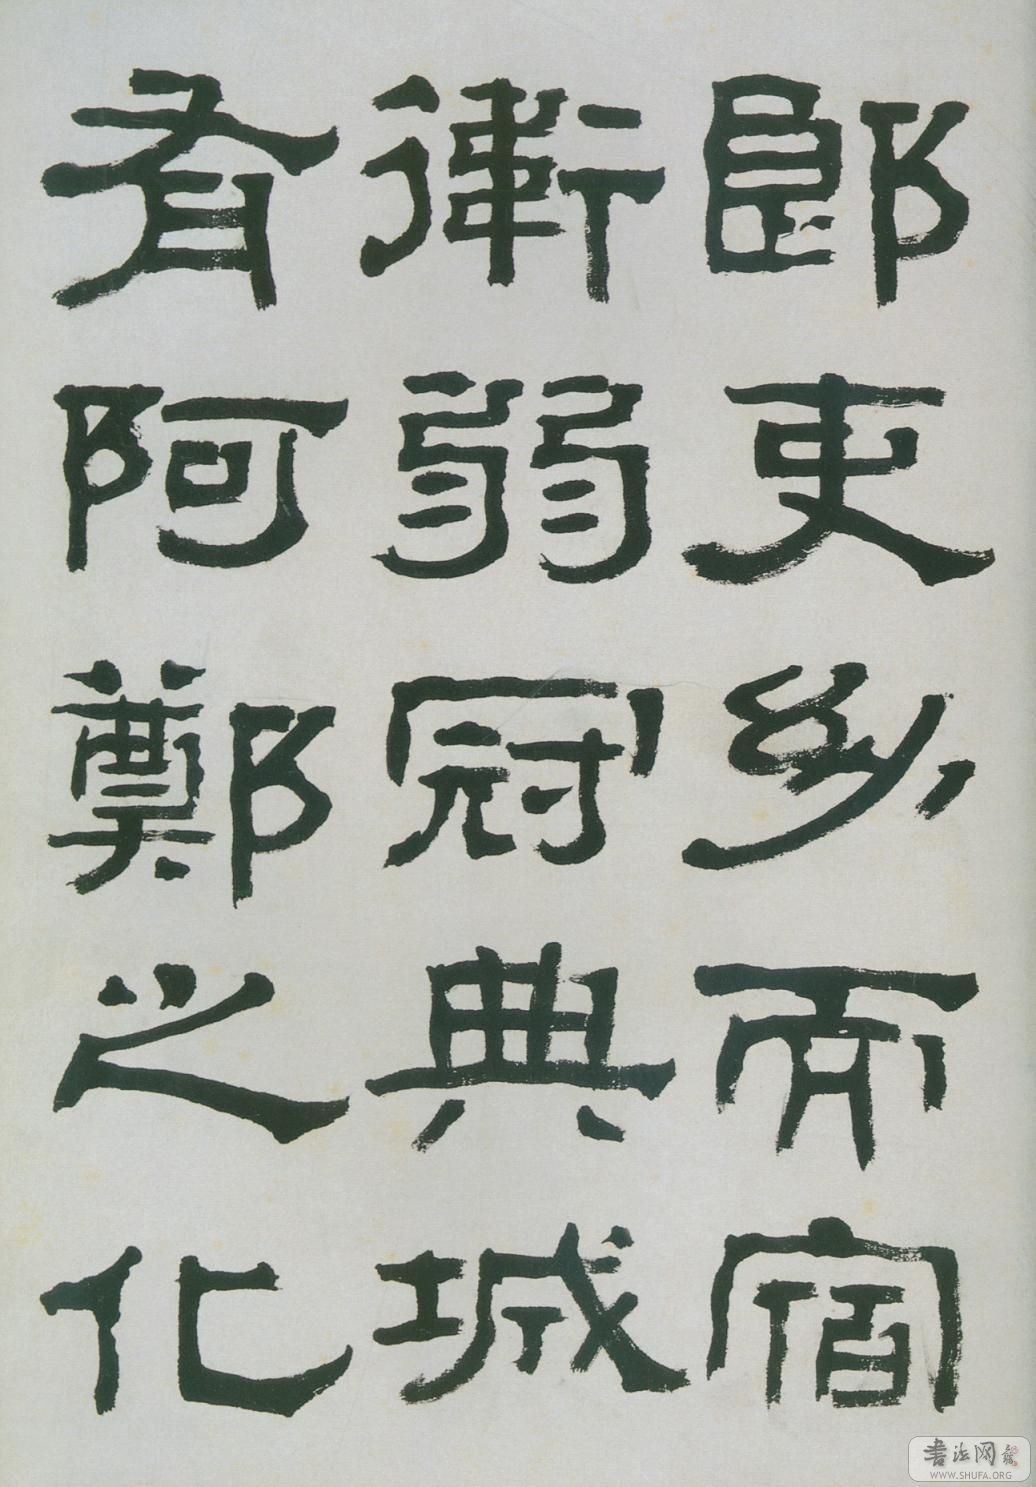 郎吏幼而宿
衛弱冠典城
有阿鄭之化
書法网
WWW.SHUFA.ORG